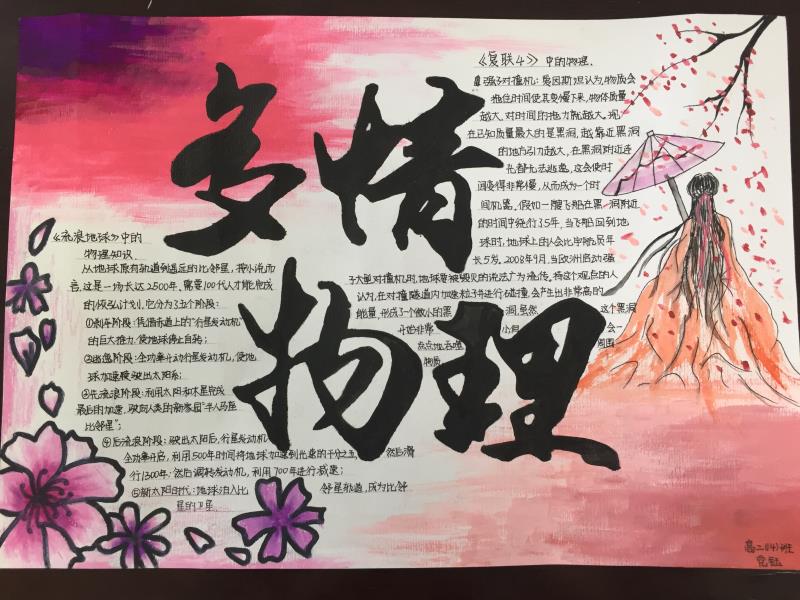 多情
物理
《复联4》中的物理.
强子对撞机:爱因斯坦认为,物质会
拖住时间使其变慢下来,物体质量
越大,对时间的拖力就越大。现
在已知质量最大的是黑洞,越靠近黑洞
的地方引力越大,在黑洞附近连
光都无法逃逸,这会使时
间变得非常慢,从而成为一个时
间机器。假如一艘飞船在黑洞附近
的时间中绕行3.5年,当飞船回到地
球时,地球上的人会比宇航员年
长5岁。2008年9月,当欧洲启动强
子大型对撞机时,地球要被毁灭的说法广为流传,持这个观点的人
认为,在对撞隧道内加速粒子并进行碰撞,会产生出非常高的
能量,形成了一个微小的黑洞,虽然 这个黑洞
开始非常小,但 会一
点点地吞噬 周围
物质
《流浪地球》中的
物理知识
从地球原有轨道到遥远的比邻星,按小说而
言,这是一场长达2500年,需要100代人才能完成
的恢弘计划,它分为5个阶段:
①刹车阶段:凭借赤道上的"行星发动机"
的巨大推力,使地球停止自转;
②逃逸阶段:全功率开动行星发动机,使地
球加速驶出太阳系;
③先流浪阶段:利用太阳和木星完成
最后的加速,驶向人类的新家园"半人马座
比邻星";
④后流浪阶段:驶出太阳后,行星发动机
全功率开启,利用500年时间将地球加速到光速的千分之五, 然后滑
行1300年,然后调转发动机,利用700年进行减速;
⑤新太阳时代:地球泊入比 邻星轨道,成为比邻
星的卫星
高二(14)班